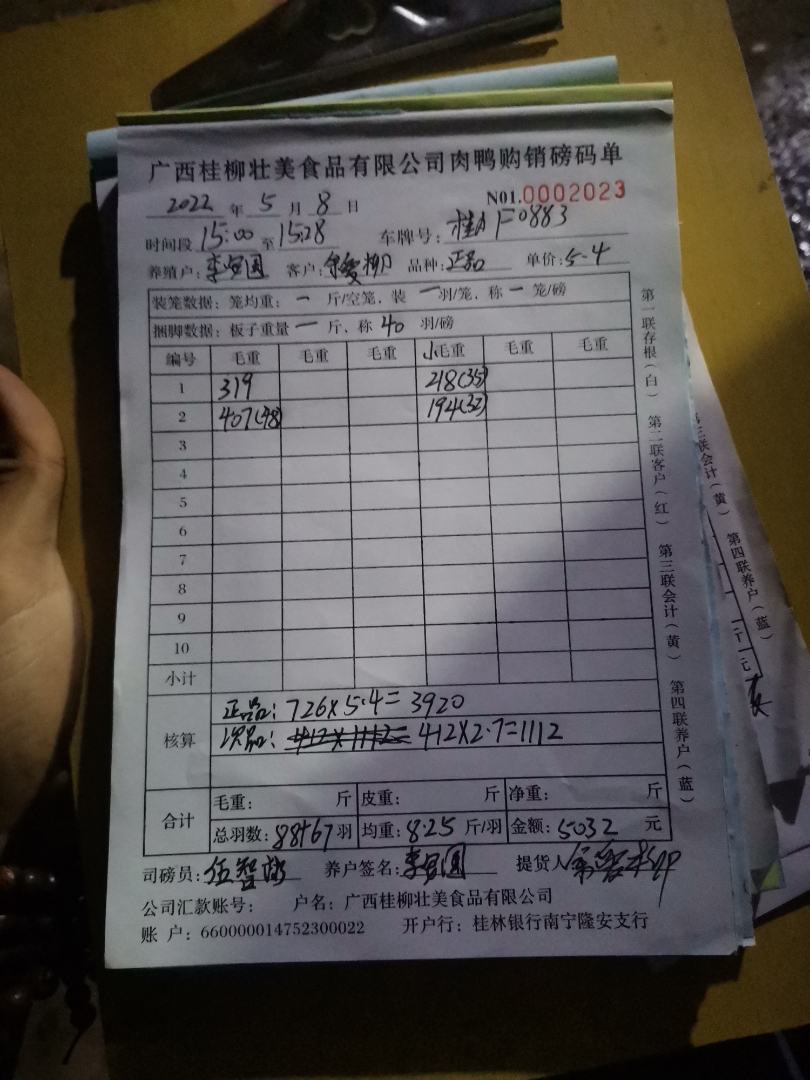 广西桂柳壮美食品有限公司肉鸭购销磅码单
2022 年 5 月 8 日 N01.0002023
时间段 15:00 至 15:28 车牌号: 桂A F0883
养殖户: 李 客户: 柳 品种: 正品 单价: 5.4
装笼数据: 笼均重: 一 斤/空笼, 装 一 羽/笼, 称 一 笼/磅
捆脚数据: 板子重量 一 斤, 称 40 羽/磅
编号 毛重 毛重 毛重 小毛重 毛重 毛重
1 319 218(35)
2 407(48) 194(32)
3
4
5
6
7
8
9
10
小计
核算
正品: 726×5.4=3920
次品: 412×2.7=1112
合计
毛重: 斤 皮重: 斤 净重: 斤
总羽数: 88+67 羽 均重: 8.25 斤/羽 金额: 5032 元
司磅员: 伍智 养户签名: 李 提货人
公司汇款账号: 户名: 广西桂柳壮美食品有限公司
账 户: 660000014752300022 开户行: 桂林银行南宁隆安支行
第一联存根(白) 第二联客户(红) 第三联会计(黄) 第四联养户(蓝)
三联会计(黄) 第四联养户(蓝)
斤
元